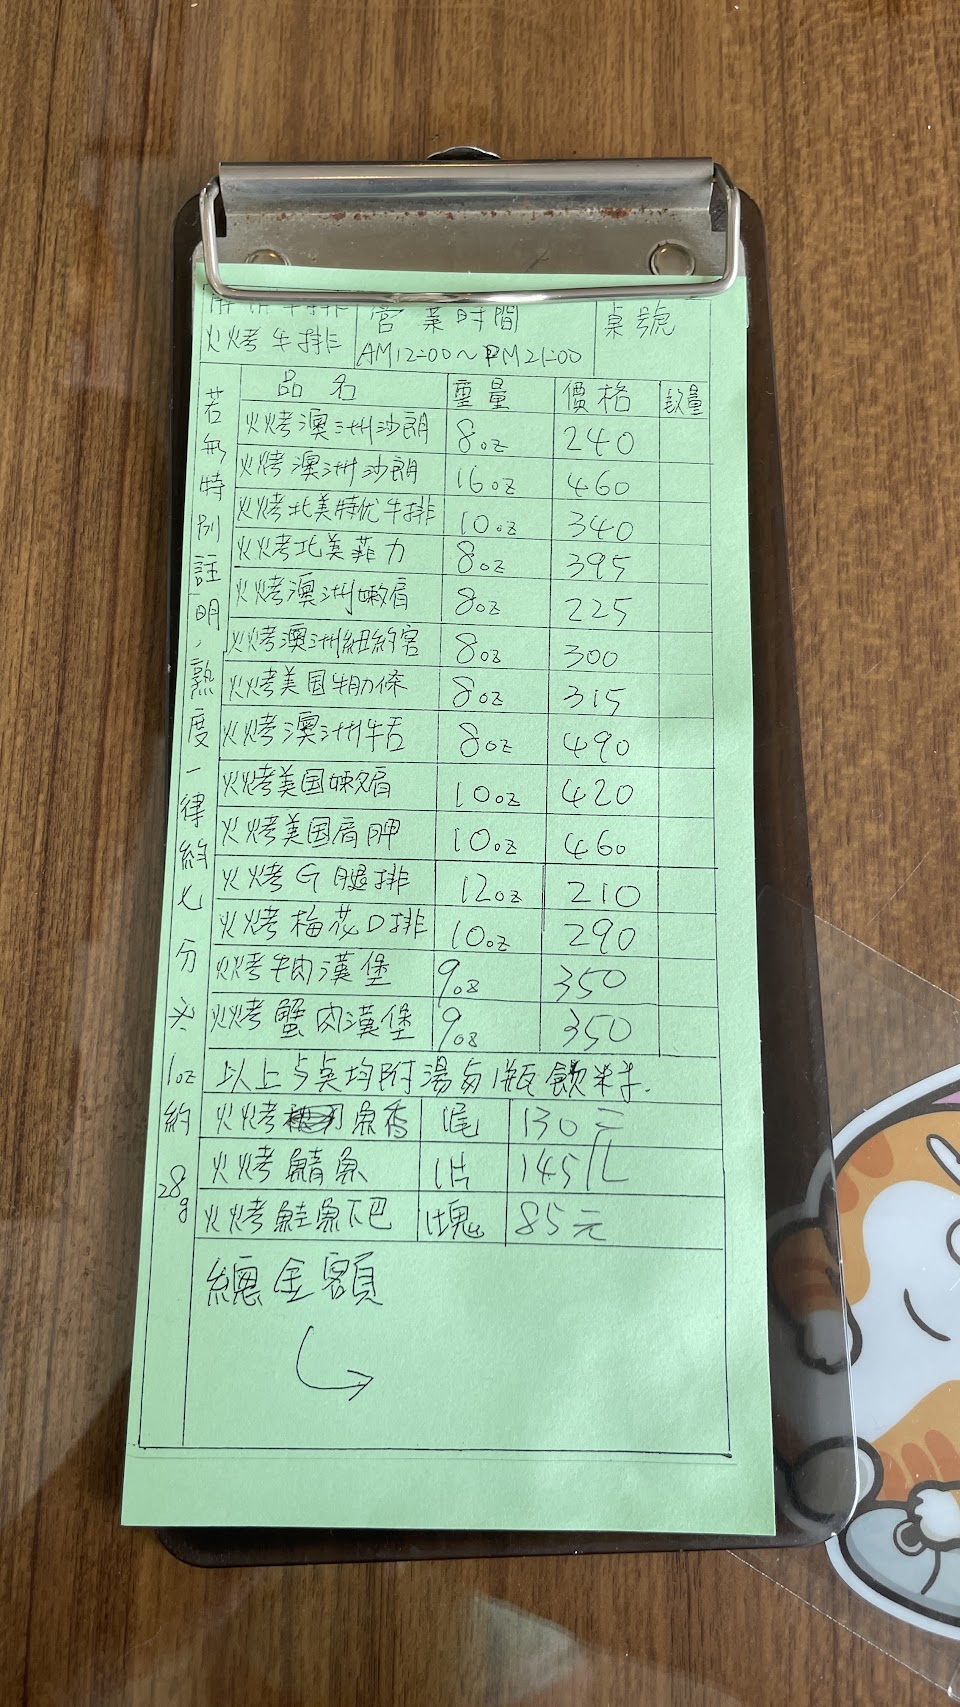 火烤牛排
營業時間
AM12:00～PM21:00
桌號
品名 重量 價格 數量
火烤澳洲沙朗 8oz 240
火烤澳洲沙朗 16oz 460
火烤北美特优牛排 10oz 340
火烤北美菲力 8oz 395
火烤澳洲嫩肩 8oz 225
火烤澳洲紐約客 8oz 300
火烤美国牛肋條 8oz 315
火烤澳洲牛舌 8oz 490
火烤美国嫩肩 10oz 420
火烤美国肩胛 10oz 460
火烤G腿排 12oz 210
火烤梅花D排 10oz 290
火烤牛肉漢堡 9oz 350
火烤蟹肉漢堡 9oz 350
以上与桌均附湯与1瓶飲料.
火烤魚香 1尾 130元
火烤鯖魚 1片 145元
火烤鮭魚下巴 1塊 85元
總金額
若無特別註明，熟度一律約七分 1oz約28g